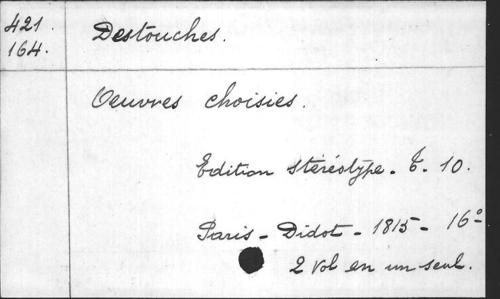 421. Destouches.
164.
Oeuvres choisies.
Edition stéréotype. t. 10.
Paris - Didot - 1815 - 16°
2 vol en un seul.